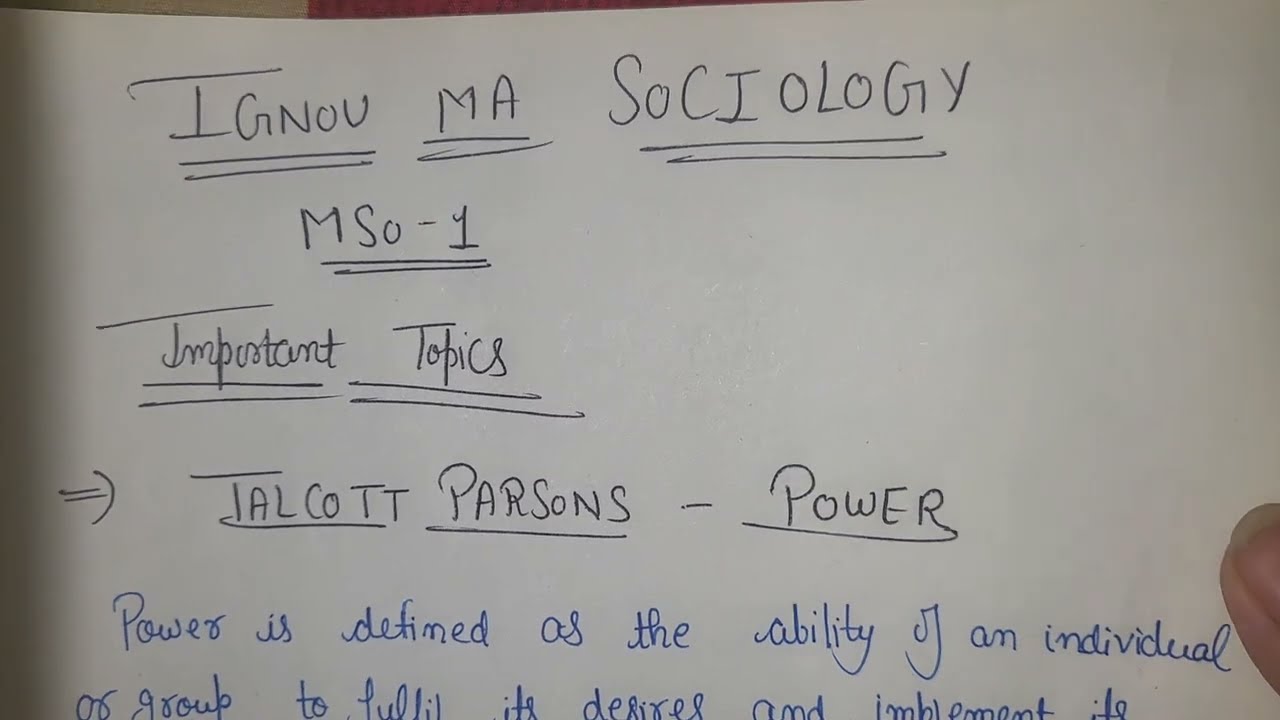 IGNOU MA SOCIOLOGY
MSO-1
Important Topics
⇒ TALCOTT PARSONS - POWER
Power is defined as the ability of an individual
or group to fulfil its desires and implement its